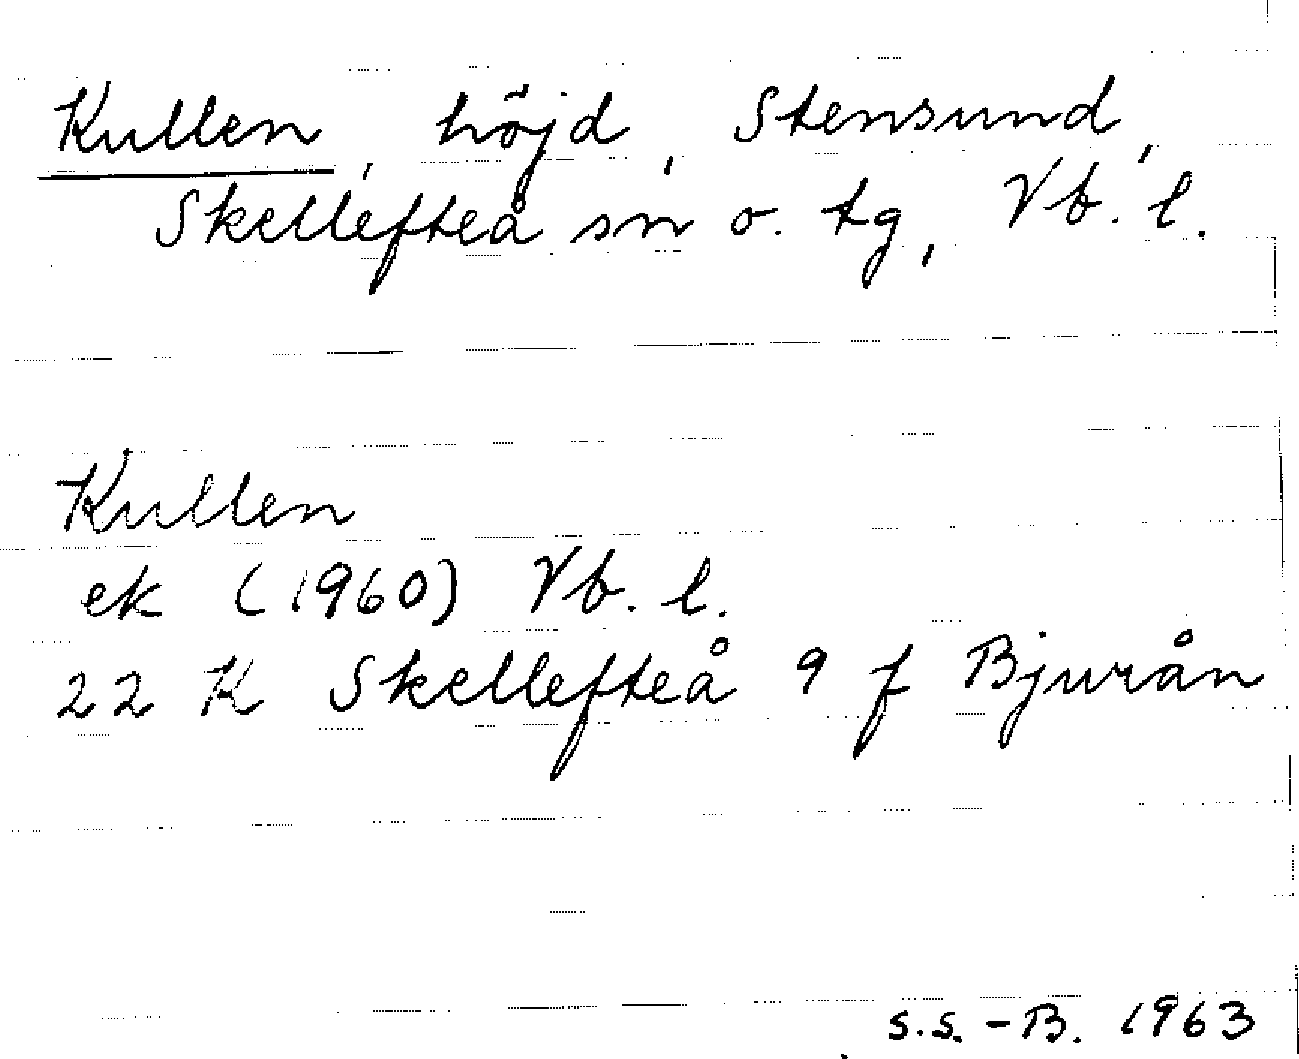 Kullen, höjd, Stensund,
Skellefteå sn o. tg, Vb. l.
Kullen
ek (1960) Vb. l.
22 K Skellefteå 9 f Bjurån
S.S.-B. 1963